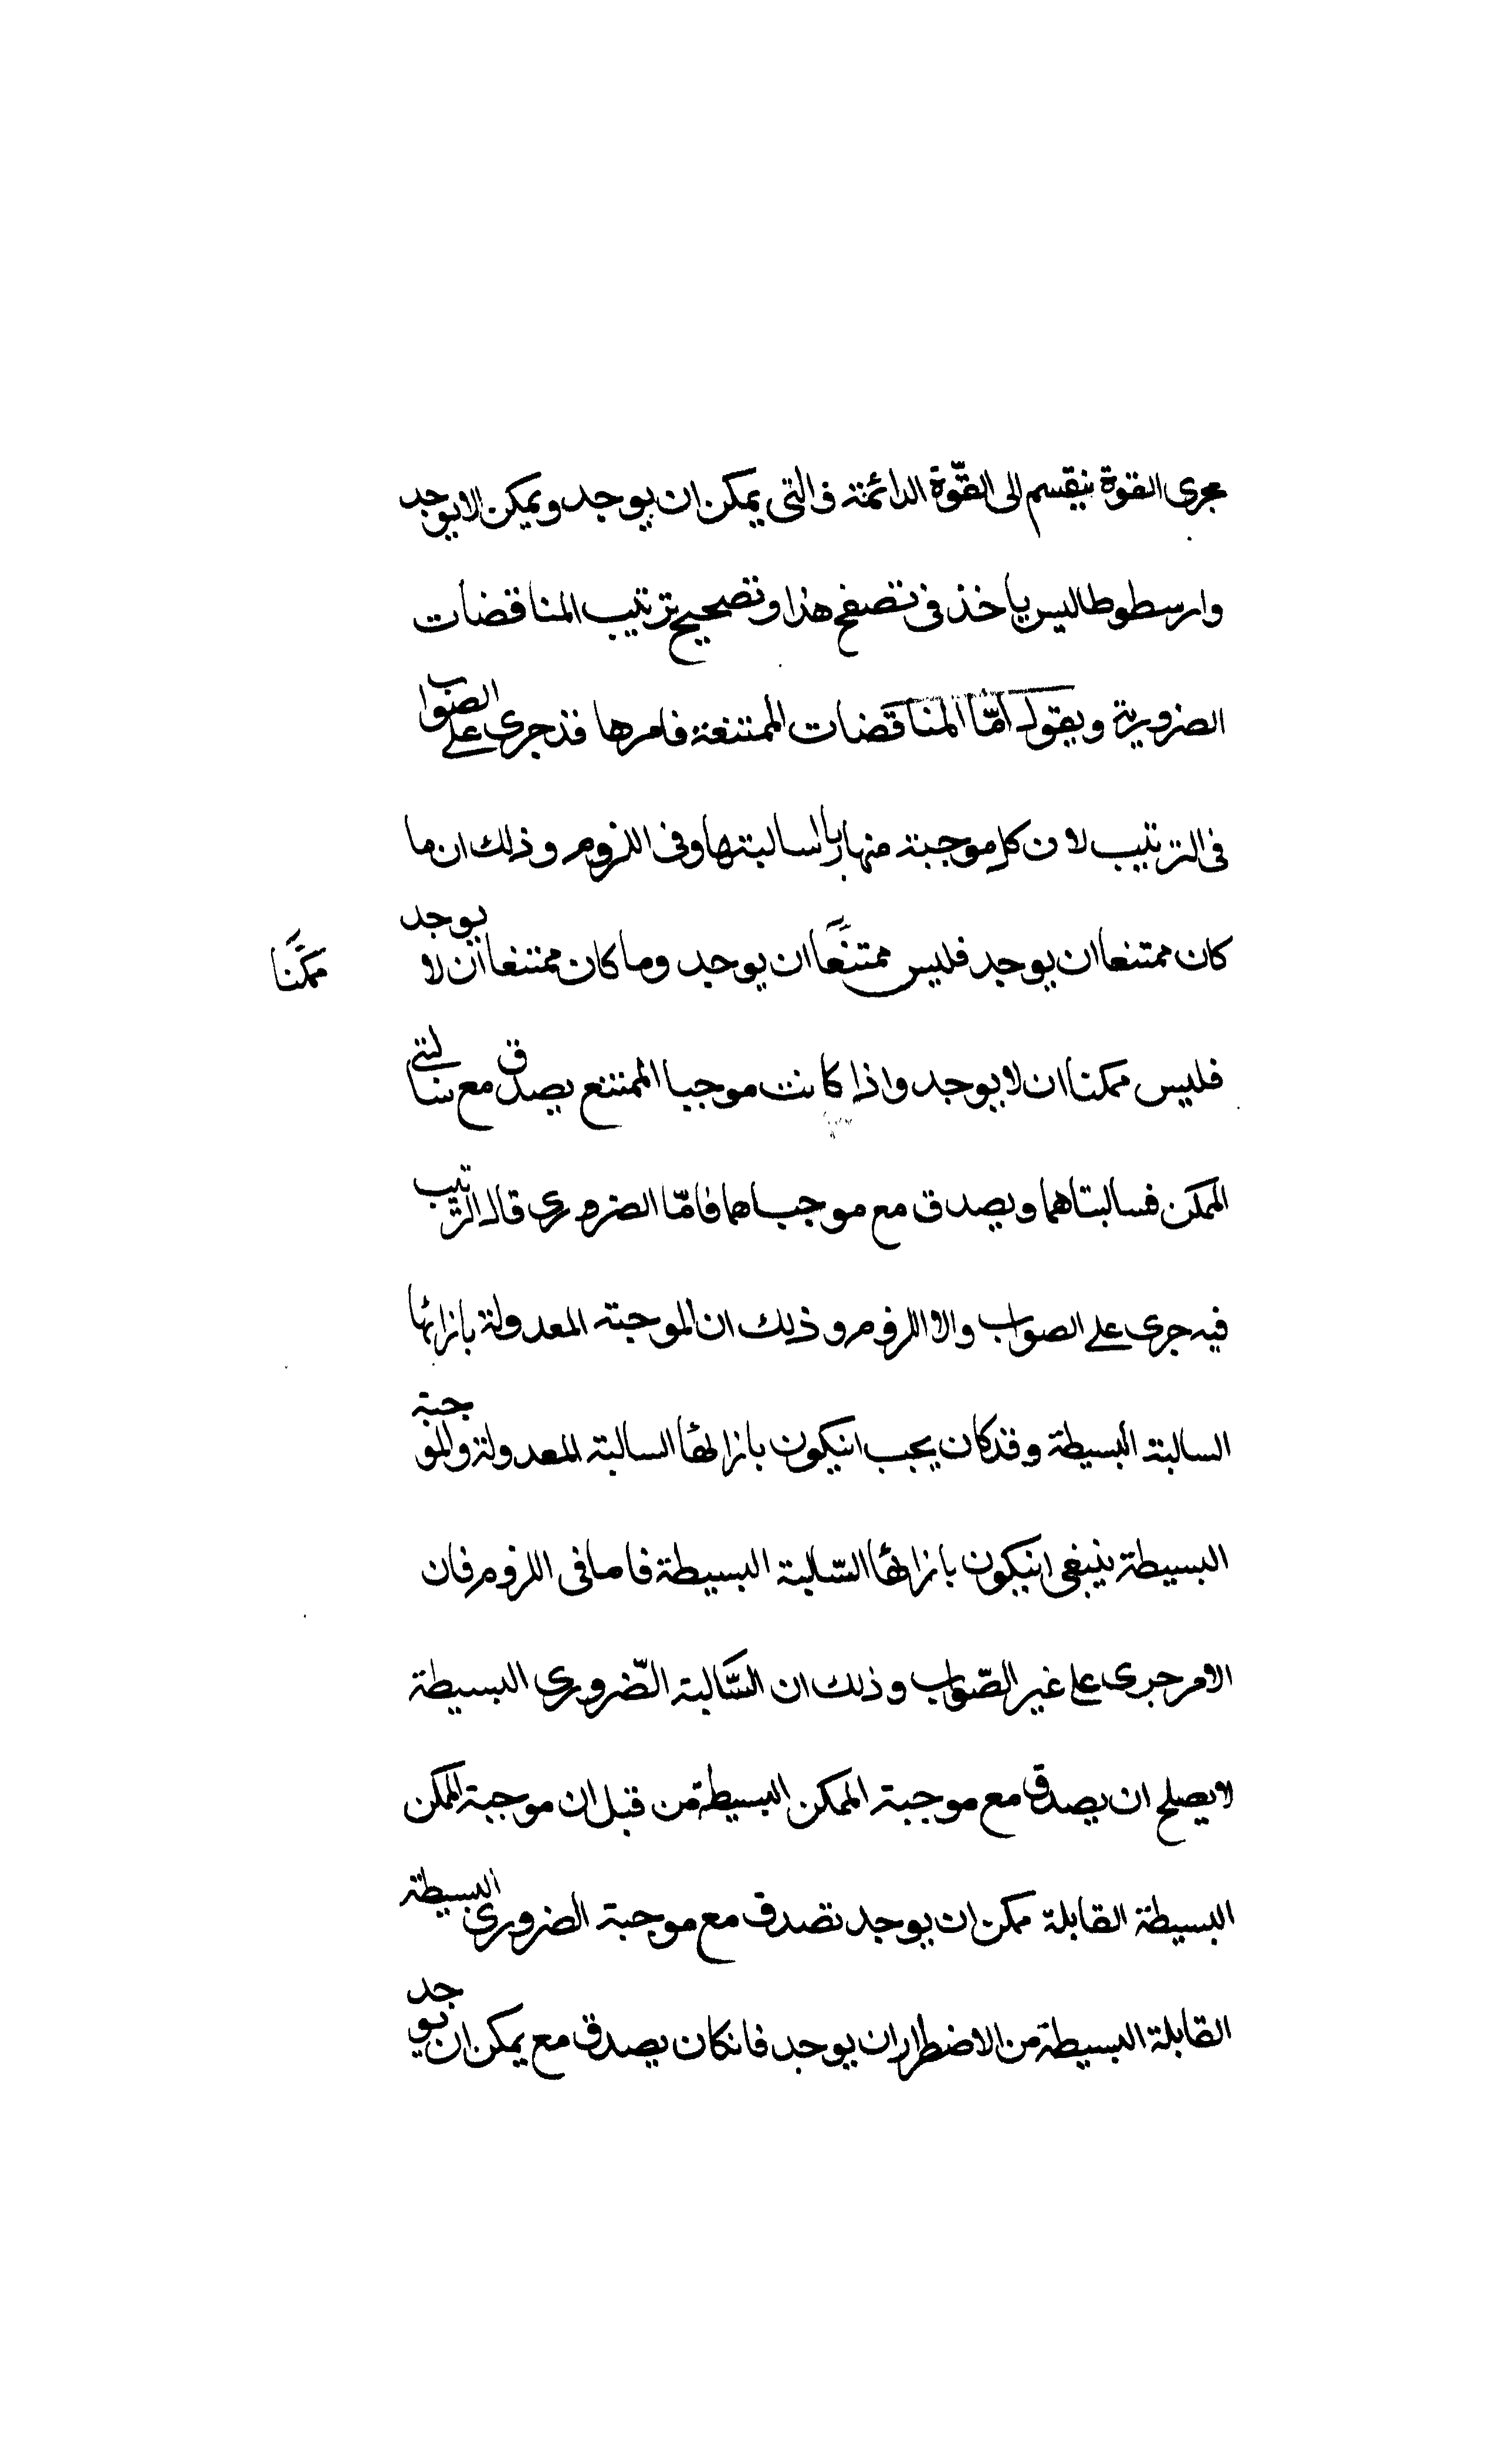 مجرى القوة ينقسم الى القوّة الدائمة فى التى يمكن ان يوجد ويمكن الا يوجد
وارسطوطاليس ياخذ فى تصفح هذا وتصحيح ترتيب المناقضات
الضرورية ويقول امّا المناقضات الممتنعة فامرها قد جرى على الصواب
فى الترتيب لان كل موجبة منها بازا سالبتها وفى اللزوم وذلك ان ما
كان ممتنعا ان يوجد فليس ممتنعًا ان يوجد وما كان ممتنعا ان لا يوجد
ممكنًا
فليس ممكنا ان لا يوجد واذا كانت موجبا الممتنع يصدق مع سالبتى
الممكن فسالبتاهما ويصدق مع موجباهما فامّا الضرورى قال الترتيب
فيه جرى على الصواب والا اللزوم وذلك ان الموجبة المعدولة بازائها
السالبة البسيطة وقد كان يجب انيكون بازائها السالبة المعدولة والموجبة
البسيطة ينبغى انيكون بازائها السّالبة البسيطة فاما فى اللزوم فان
الامر جرى على غير الصّواب وذلك ان السّالبة الضّرورى البسيطة
لا يصلح ان يصدق مع موجبة الممكن البسيطة من قبل ان موجبة الممكن
البسيطة القابلة ممكن ان يوجد تصدق مع موجبة الضرورى البسيطة
القابلة البسيطة من الاضطرار ان يوجد فانكان يصدق مع يمكن ان يوجد